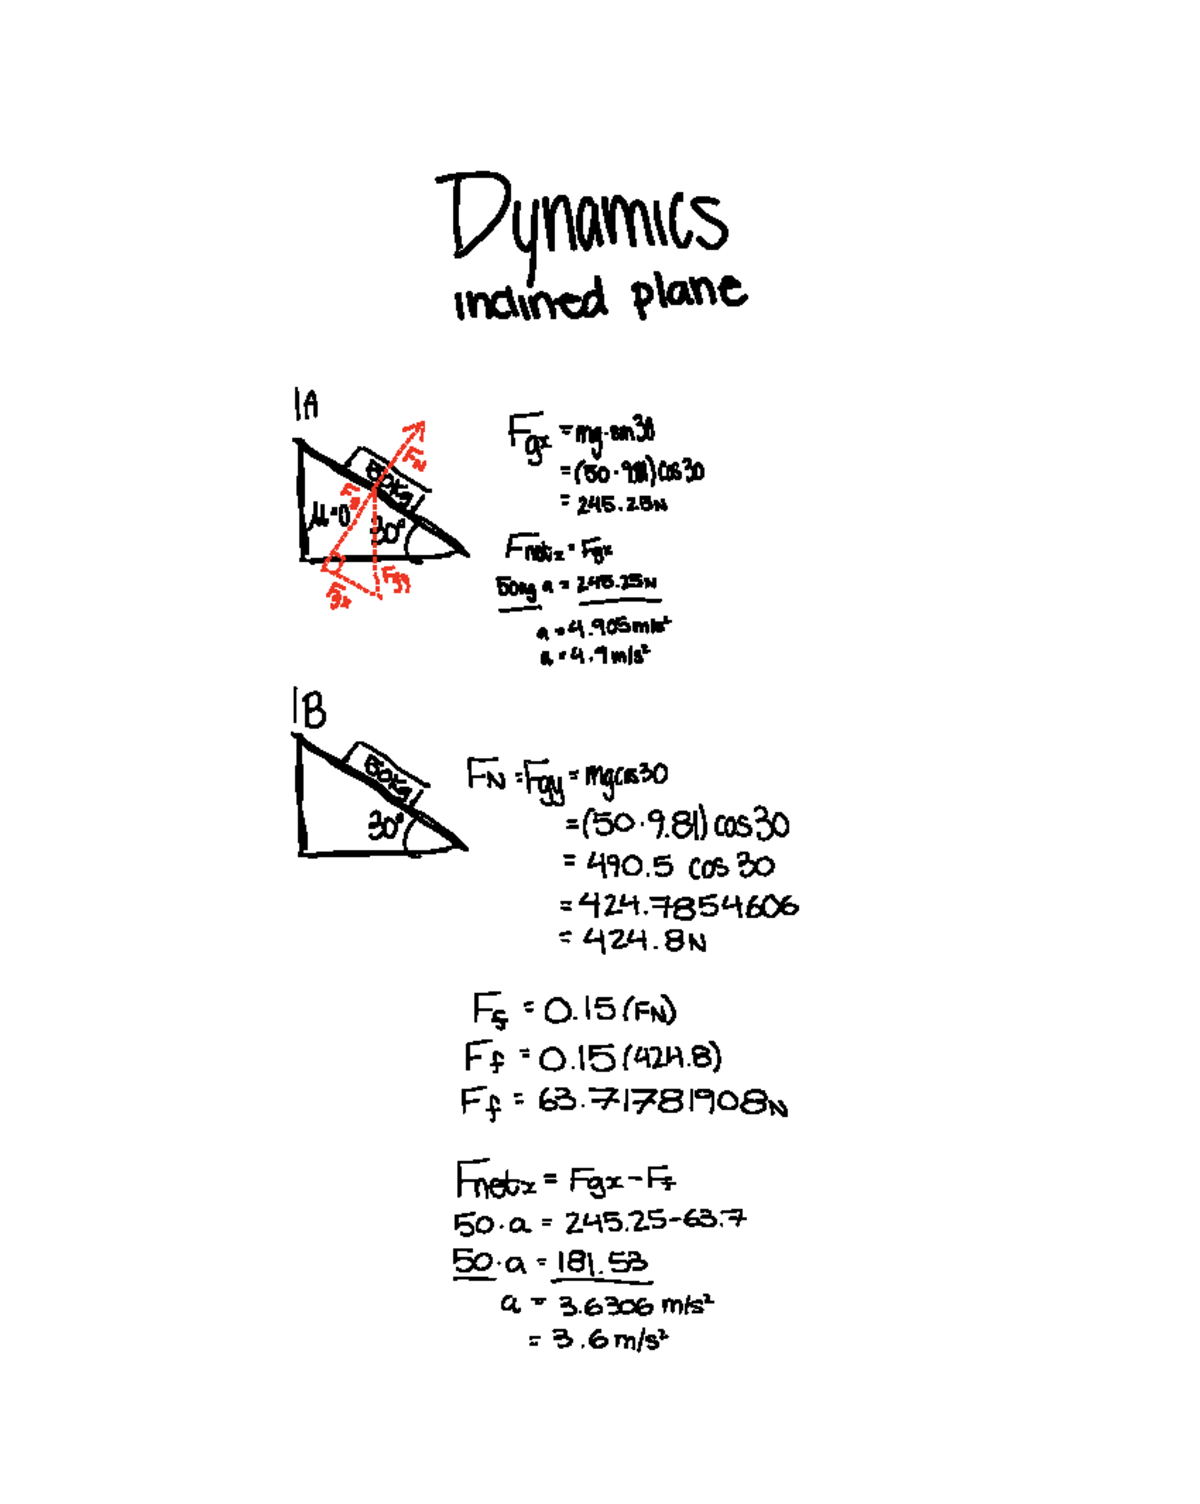 Dynamics
inclined plane
1A
FN
50kg
Fg
μ=0
30°
Fgy
Fgx
Fgx = mg·sin30
=(50·9.81)cos30
= 245.25N
Fnetx = Fgx
50kg a = 245.25N
a = 4.905m/s²
a = 4.9m/s²
1B
50kg
30°
FN = Fgy = mgcos30
=(50·9.81) cos30
= 490.5 cos 30
= 424.7854606
= 424.8N
Ff = 0.15(FN)
Ff = 0.15(424.8)
Ff = 63.71781908N
Fnetx = Fgx-Ff
50·a = 245.25-63.7
50·a = 181.53
a = 3.6306 m/s²
= 3.6m/s²